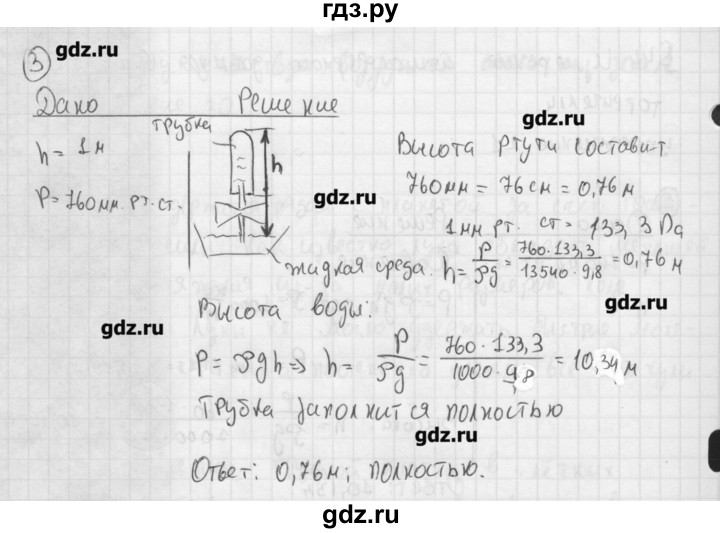 гдз.ру
gdz.ru
③
Дано Решение
трубка
gdz.ru
h = 1 м
h
Высота ртути составит
P = 760 мм. рт. ст.
gdz.ru
760 мм = 76 см = 0,76 м
1 мм рт. ст = 133,3 Па
жидкая среда. h = P/ρg = 760·133,3/13546·9,8 = 0,76 м
gdz.ru
gdz.ru
Высота воды:
P = ρgh ⇒ h = P/ρg = 760·133,3/1000·9,8 = 10,34 м
Трубка заполнится полностью
gdz.ru
Ответ: 0,76 м; полностью.
gdz.ru